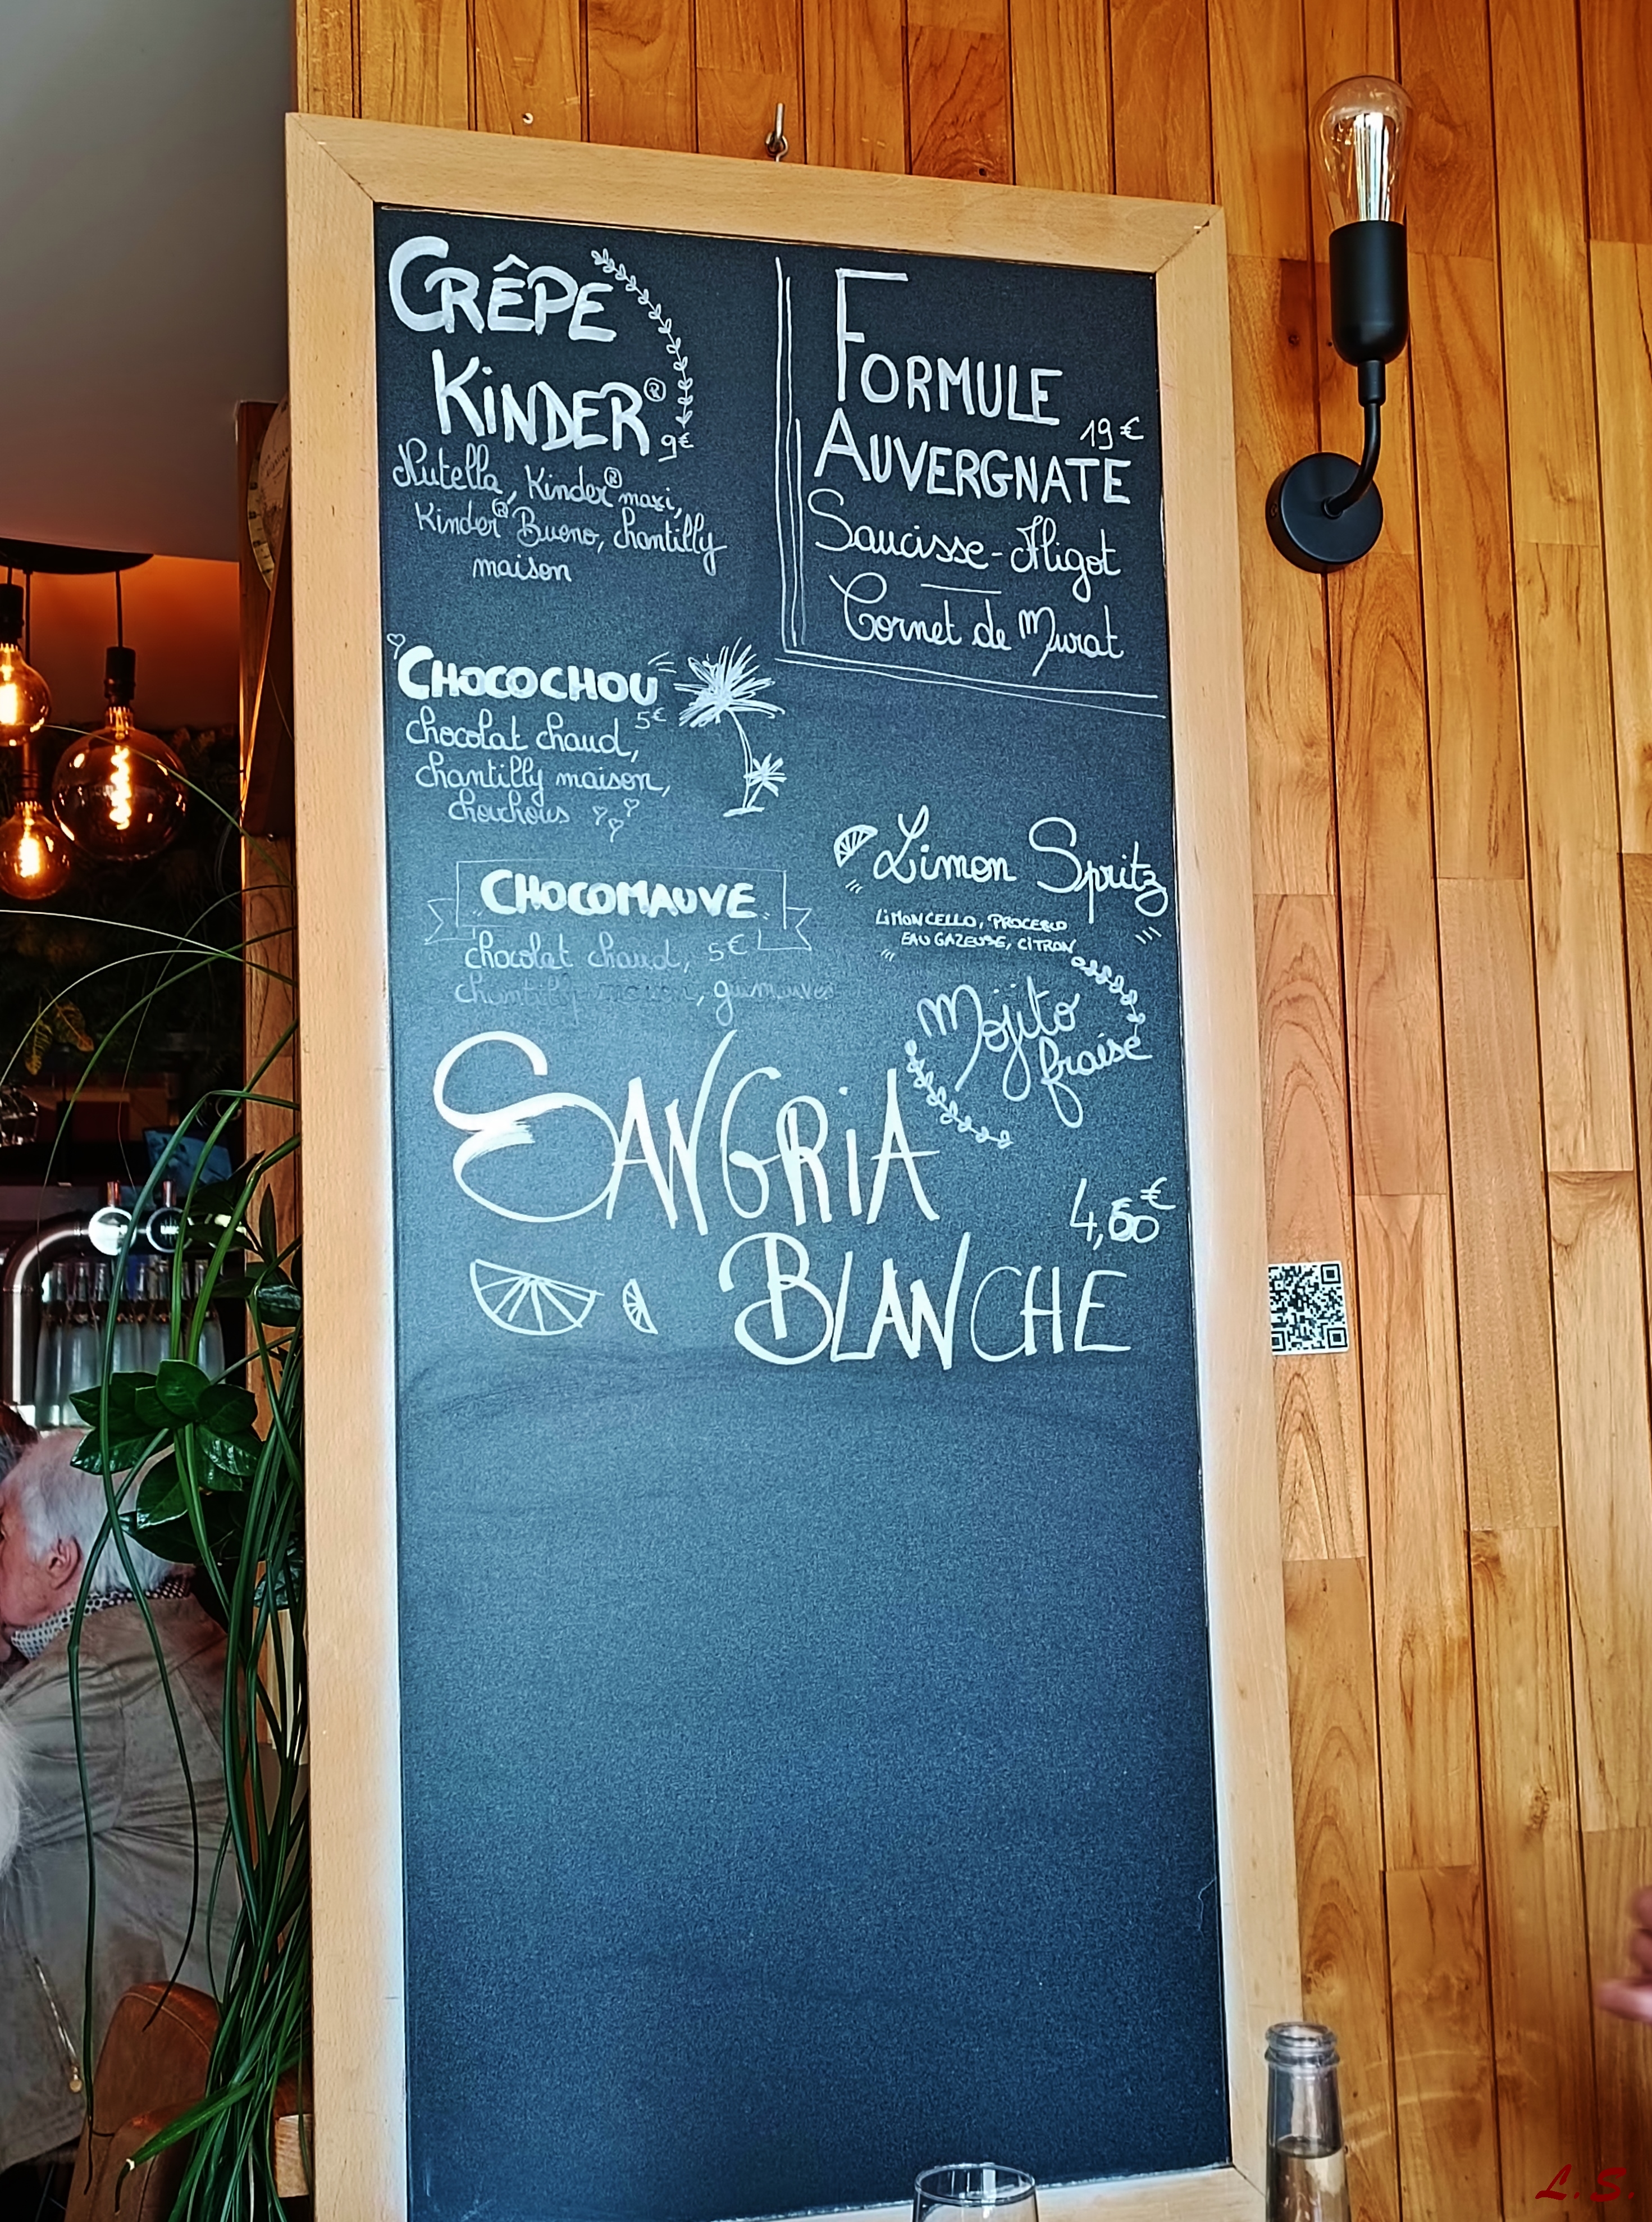 CRÊPE
KiNDER®
9€
Nutella, Kinder® maxi,
Kinder® Bueno, chantilly
maison
FORMULE
19€
AUVERGNATE
Saucisse-Aligot
Cornet de Murat
CHOCOCHOU
5€
chocolat chaud,
chantilly maison,
chouchous
CHOCOMAUVE
chocolat chaud, 5€
chantilly maison, guimauves
Limon Spritz
LiMONCELLO, PROCESCO
EAU GAZEUSE, CITRON
Mojito
fraise
SANGRiA
4,50€
BLANCHE
L.S.